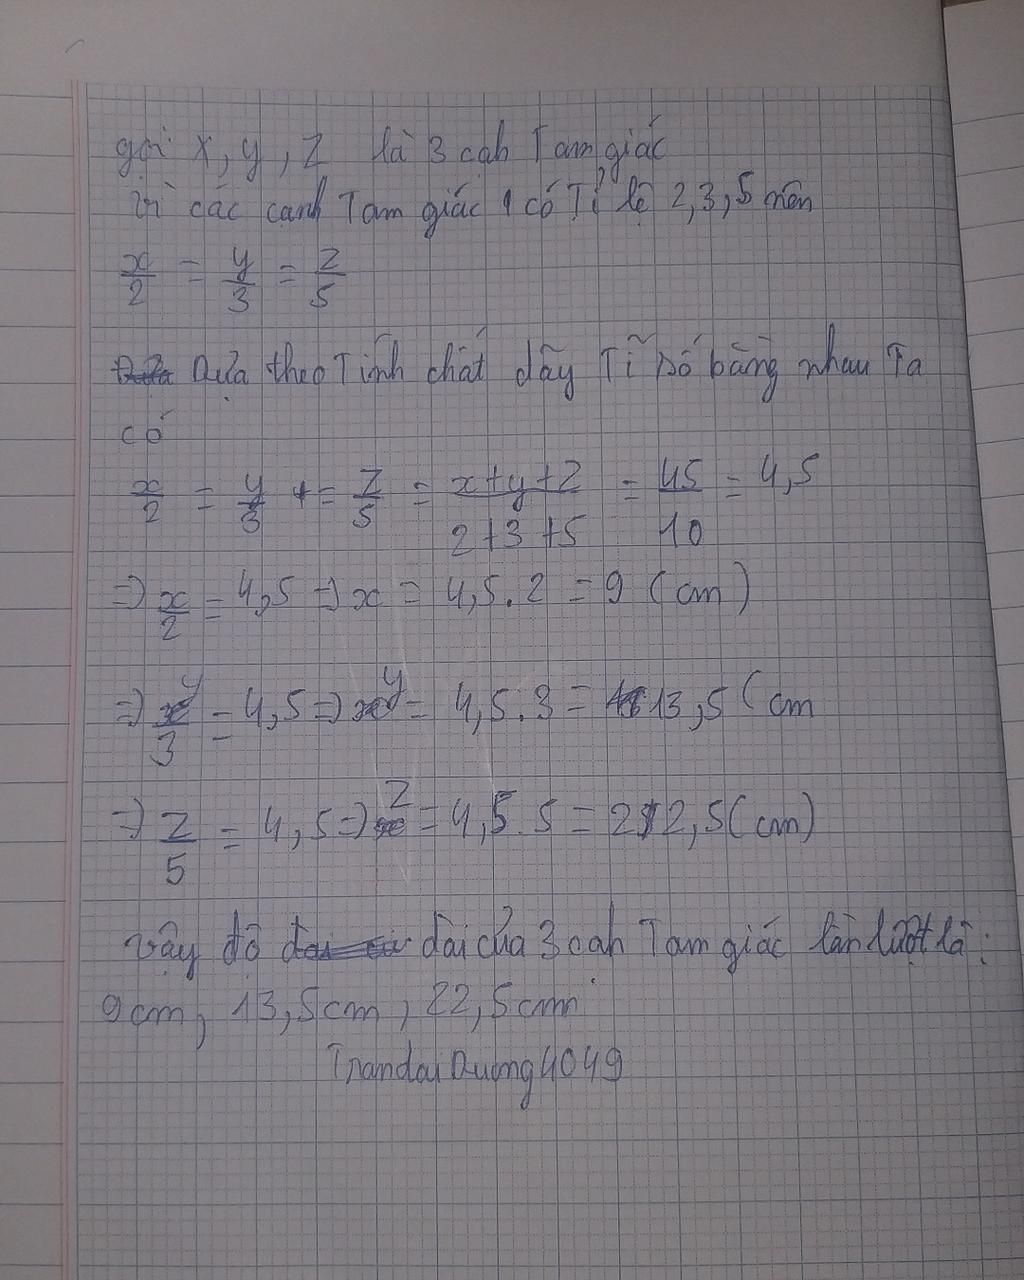 gọi x, y, z là 3 cah Tam giác
Vì các cạnh Tam giác có Tỉ lệ 2, 3, 5 nên
x/2 = y/3 = z/5
Dựa theo Tính chất dãy Tỉ số bằng nhau Ta
có
x/2 = y/3 = z/5 = x+y+z/2+3+5 = 45/10 = 4,5
=> x/2 = 4,5 => x = 4,5.2 = 9 (cm)
=> y/3 = 4,5 => y = 4,5.3 = 13,5 (cm
=> z/5 = 4,5 => z = 4,5.5 = 22,5 (cm)
Vậy độ dài của 3 cah Tam giác lần lượt là:
9cm, 13,5cm, 22,5cm
TrandaiDuong4049